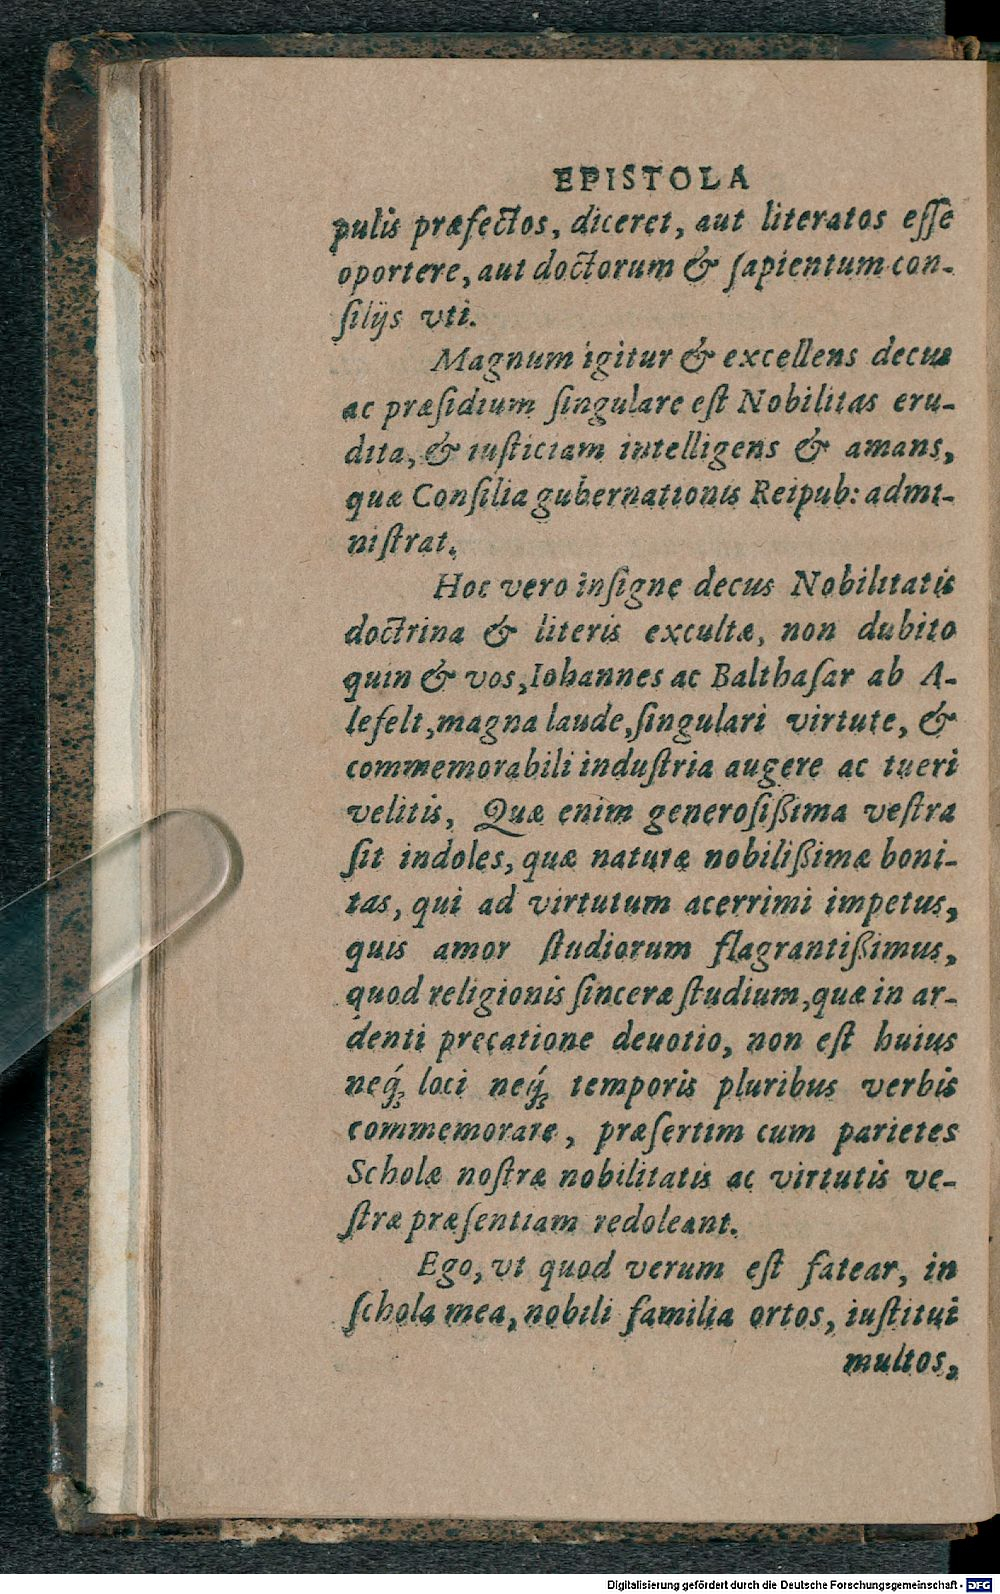 EPISTOLA
pulis præfectos, diceret, aut literatos eſſe
oportere, aut doctorum & ſapientum con-
ſilijs vti.
Magnum igitur & excellens decus
ac præſidium ſingulare eſt Nobilitas eru-
dita, & iuſticiam intelligens & amans,
quæ Conſilia gubernationis Reipub: admi-
niſtrat.
Hoc vero inſigne decus Nobilitatis
doctrina & literis excultæ, non dubito
quin & vos, Iohannes ac Balthaſar ab A-
lefelt, magna laude, ſingulari virtute, &
commemorabili induſtria augere ac tueri
velitis, Quæ enim generoſißima veſtra
ſit indoles, quæ naturæ nobilißimæ boni-
tas, qui ad virtutum acerrimi impetus,
quis amor ſtudiorum flagrantißimus,
quod religionis ſinceræ ſtudium, quæ in ar-
denti precatione deuotio, non eſt huius
neq́ꝫ loci neq́ꝫ temporis pluribus verbis
commemorare, præſertim cum parietes
Scholæ noſtræ nobilitatis ac virtutis ve-
ſtræ præſentiam redoleant.
Ego, vt quod verum eſt fatear, in
ſchola mea, nobili familia ortos, iuſtitui
multos,
Digitalisierung gefördert durch die Deutsche Forschungsgemeinschaft - DFG